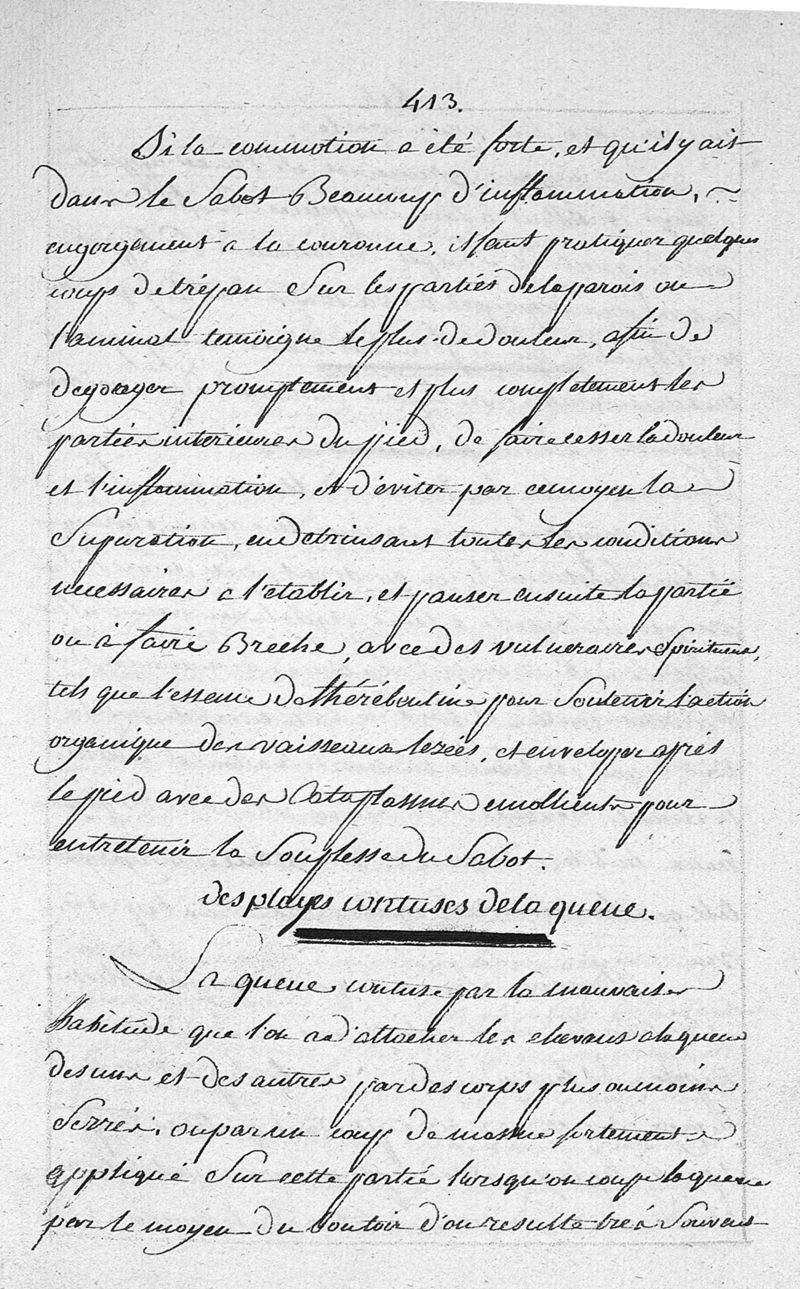 413.
Si la commotion a été forte, et qu'il y ait
dans le Sabot Beaucoup d'inflammation,
engorgement a la couronne, il faut pratiquer quelques
coups de trépan Sur les parties de la parois ou
l'animal temoigne le plus de douleur, afin de
degorger promptement et plus completement les
parties interieures du pied, de faire cesser la douleur
et l'inflammation, et d'éviter par ce moyen la
Supuration, en detruisant toutes les conditions
necessaires a l'etablir, et panser ensuite la partie
ou à faire Breche, avec des vulneraires Spiritueux,
tels que l'essence de théréboutine pour Soutenir l'action
organique des vaisseaux lezés, et enveloper après
le pied avec des Cataplasmes emollients pour
entretenir la Souplesse du Sabot.
des playes contuses de la queue.
La queue contuse par la mauvaise
habitude que l'on a d'attacher les chevaux a la queue
des uns et des autres par des corps plus ou moins
Serrés, ou par un coup de masse fortement
appliqué Sur cette partie lorsqu'on coupe la queue
par le moyen du boutoir d'ou resulte très Souvent